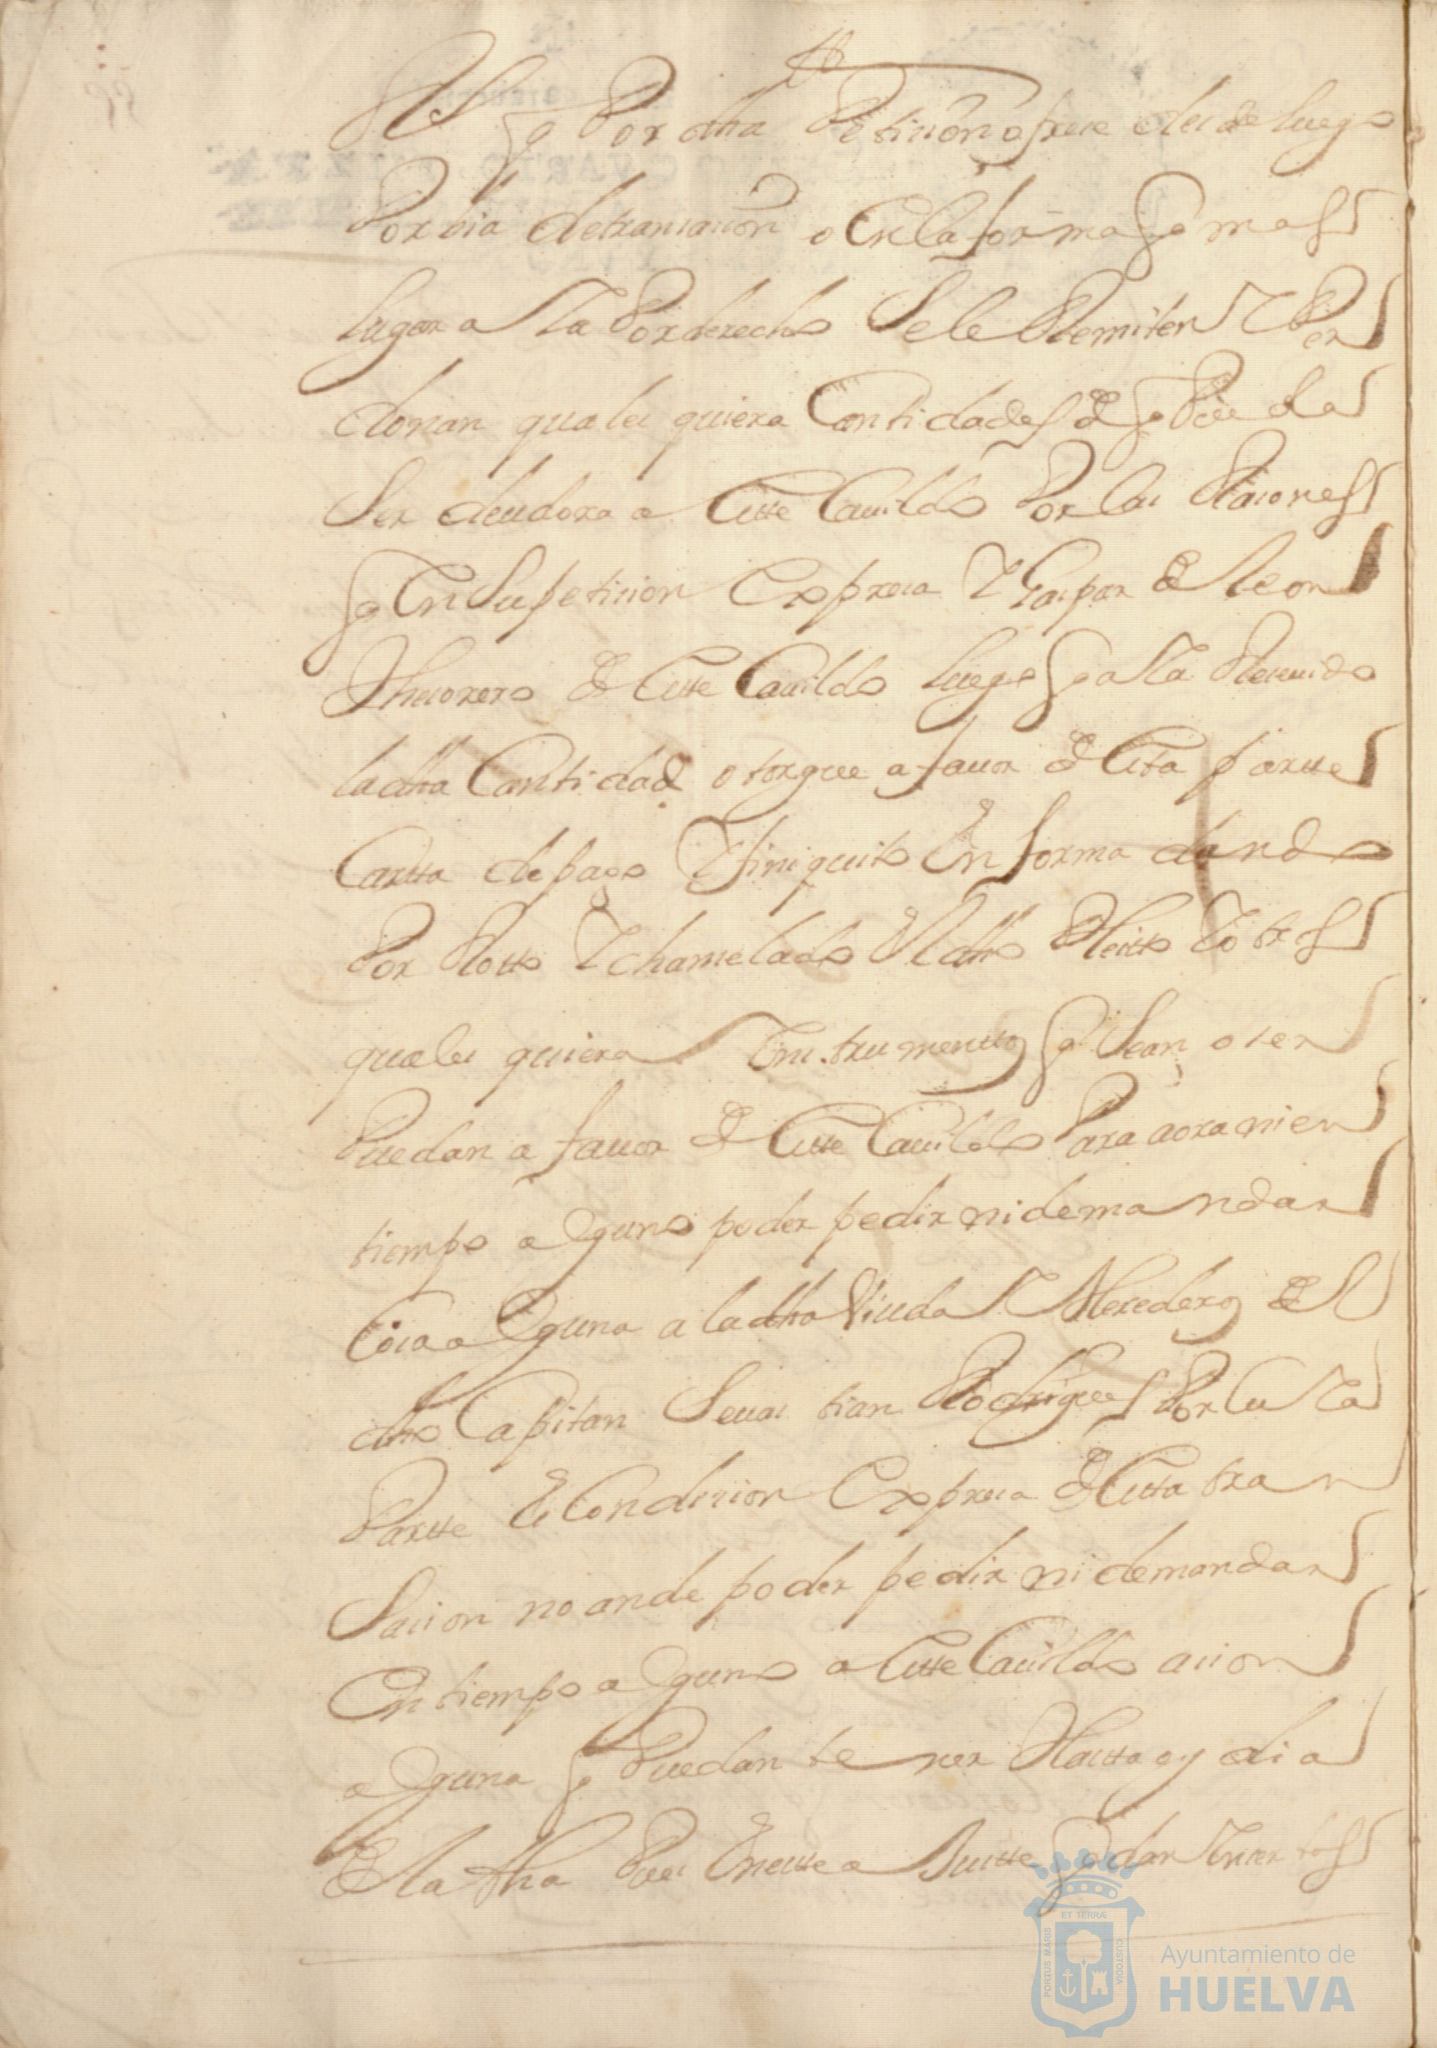 q Por dha Peticiōn ofrece desde luego
Por bia de transaciōn o en la forma q mas
lugar aia Por derecho Se le Remiten Y Per
donan quales quiera Cantidades de q Pueda
Ser deudora a este Cauildo Por las Raiones
q en Su peticion expresa Y Gaspar de leon
Thesorero de este Cauildo luego q aia Resciuido
la dha Cantidad otorgue a fauor de esta partte
Cartta de pago Y finiquito en forma dando
Por Rotto Y chanselado el dho Pleitto Y otros
quales quiera Instrumenttos q Sean o ser
Puedan a fauor de este Cauildo Para aora ni en
tiempo alguno poder pedir ni demandar
Cosa alguna a la dha Viuda Y Herederos del
dho Capitan Seuastian Rodrigues Por cuia
Partte es Condicion expresa de esta tran
Sacion no an de poder pedir ni demandar
En tiempo alguno a este Cauildo acion
alguna q Puedan tener Hasta oy dia
de la fha Pues en este a Juste quedan Inciertos
PORTUS MARIS
ET TERRÆ
CUSTODIA
Ayuntamiento de
HUELVA